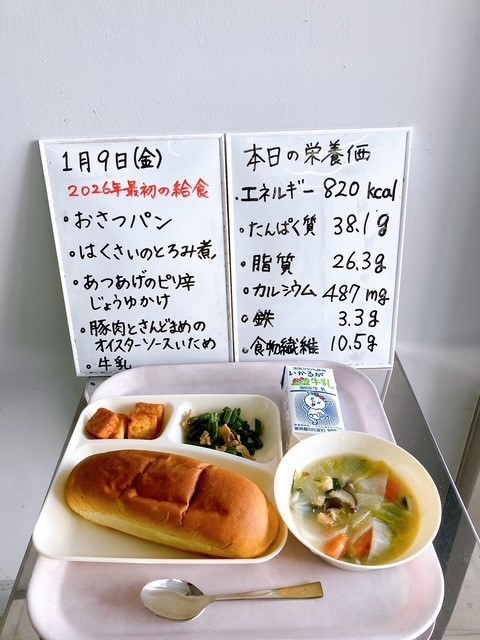 1月9日(金)
2026年最初の給食
・おさつパン
・はくさいのとろみ煮
・あつあげのピリ辛
じょうゆかけ
・豚肉とさんどまめの
オイスターソースいため
・牛乳
本日の栄養価
・エネルギー 820 kcal
・たんぱく質 38.1g
・脂質 26.3g
・カルシウム 487 mg
・鉄 3.3g
・食物繊維 10.5g
いかるが
牛乳